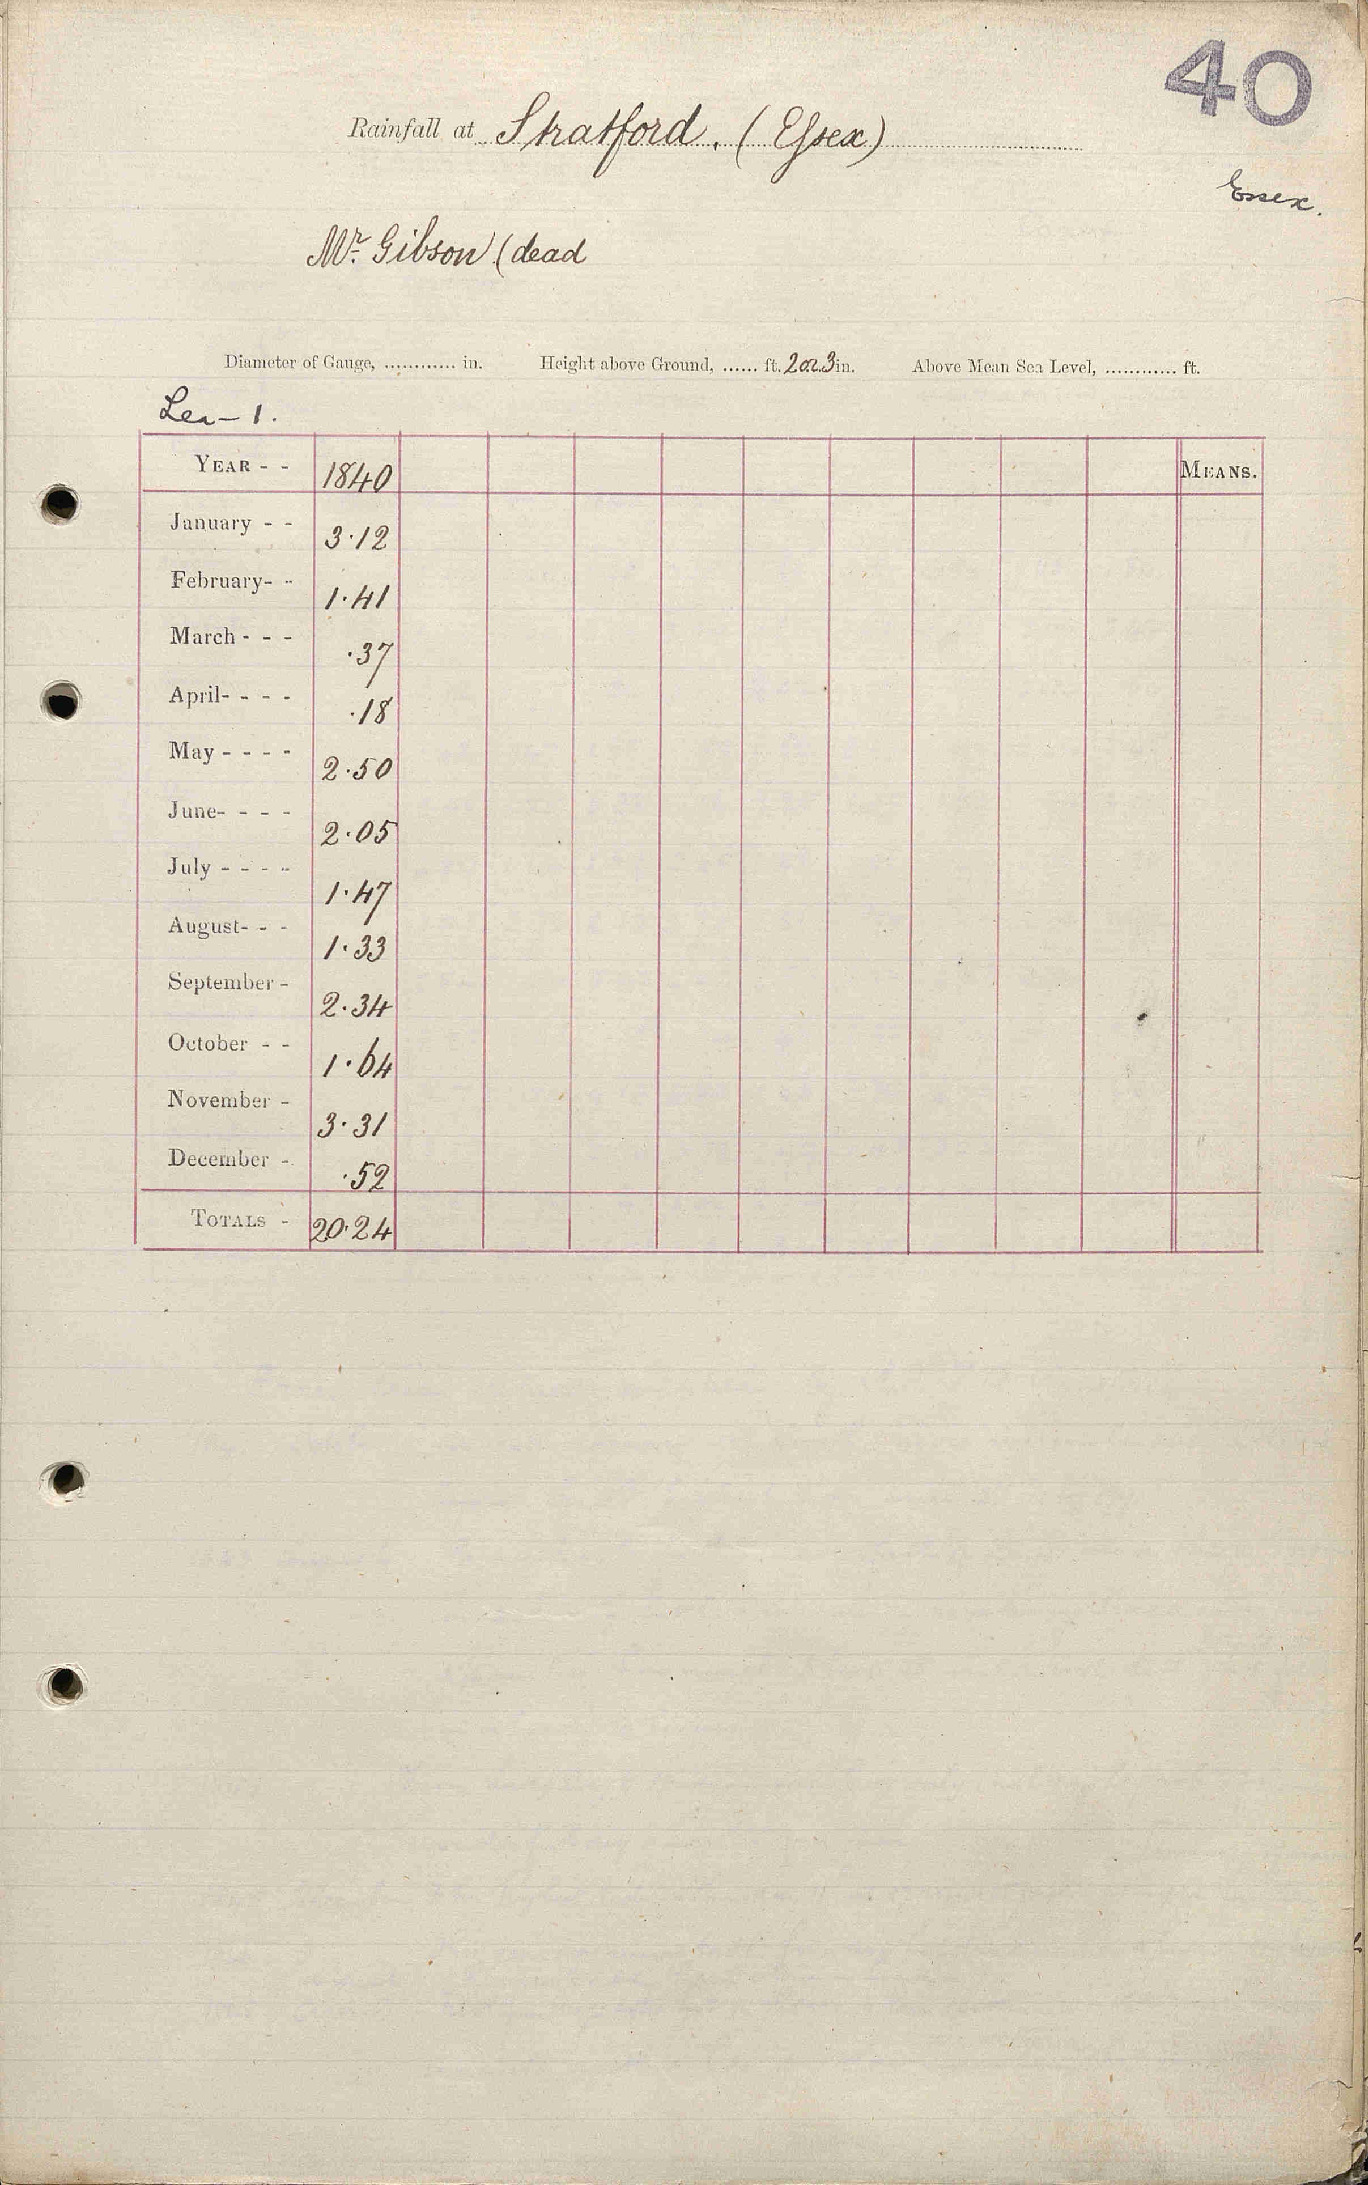 40
Rainfall at Stratford. (Essex)
Essex.
Mr. Gibson (dead
Diameter of Gauge, ............ in. Height above Ground, ...... ft. 2 or 3 in. Above Mean Sea Level, ............ ft.
Lea - 1.
YEAR - - 1840 MEANS.
January - - 3.12
February- - 1.41
March - - - .37
April- - - - .18
May - - - - 2.50
June- - - - 2.05
July - - - - 1.47
August- - - 1.33
September - 2.34
October - - 1.64
November - 3.31
December - .52
TOTALS - 20.24